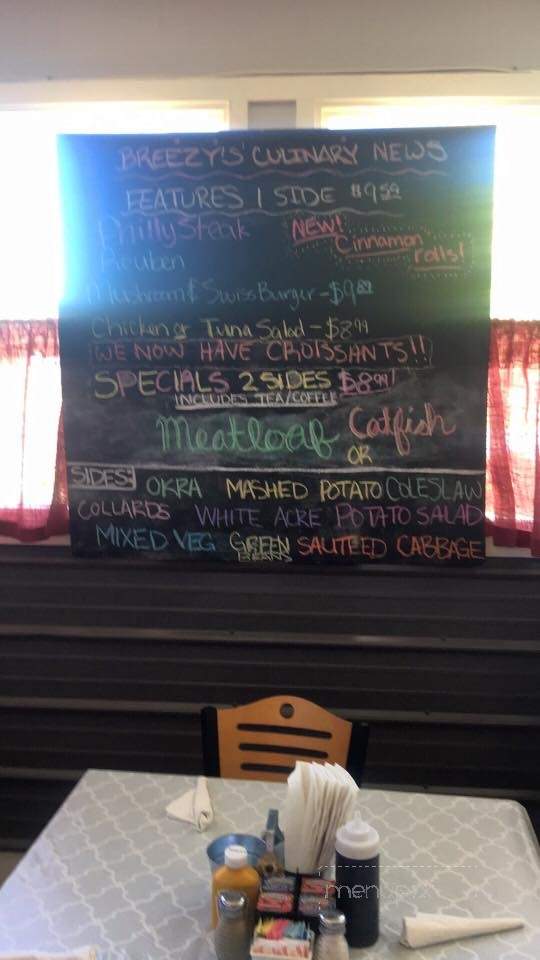 BREEZY'S CULINARY NEWS
FEATURES 1 SIDE $9.59
Philly Steak
NEW!
Cinnamon
rolls!
Reuben
Mushroom & Swiss Burger - $9
Chicken or Tuna Salad - $8.99
WE NOW HAVE CROISSANTS!!
SPECIALS 2 SIDES $8.99!
INCLUDES TEA/COFFEE
Meatloaf
Catfish
OR
SIDES:
OKRA MASHED POTATO COLESLAW
COLLARDS WHITE ACRE POTATO SALAD
MIXED VEG GREEN BEANS SAUTEED CABBAGE